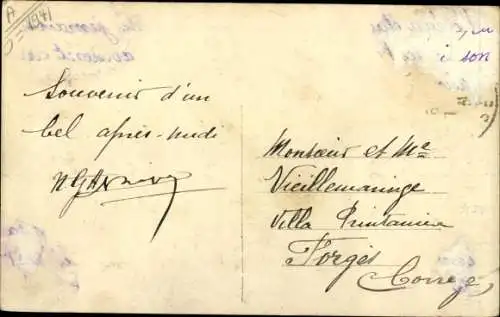 A
1941
Souvenir d'un
bel après-midi
Monsieur et Me
Vieillemaringe
Villa Printanière
Forgès
Corrèze